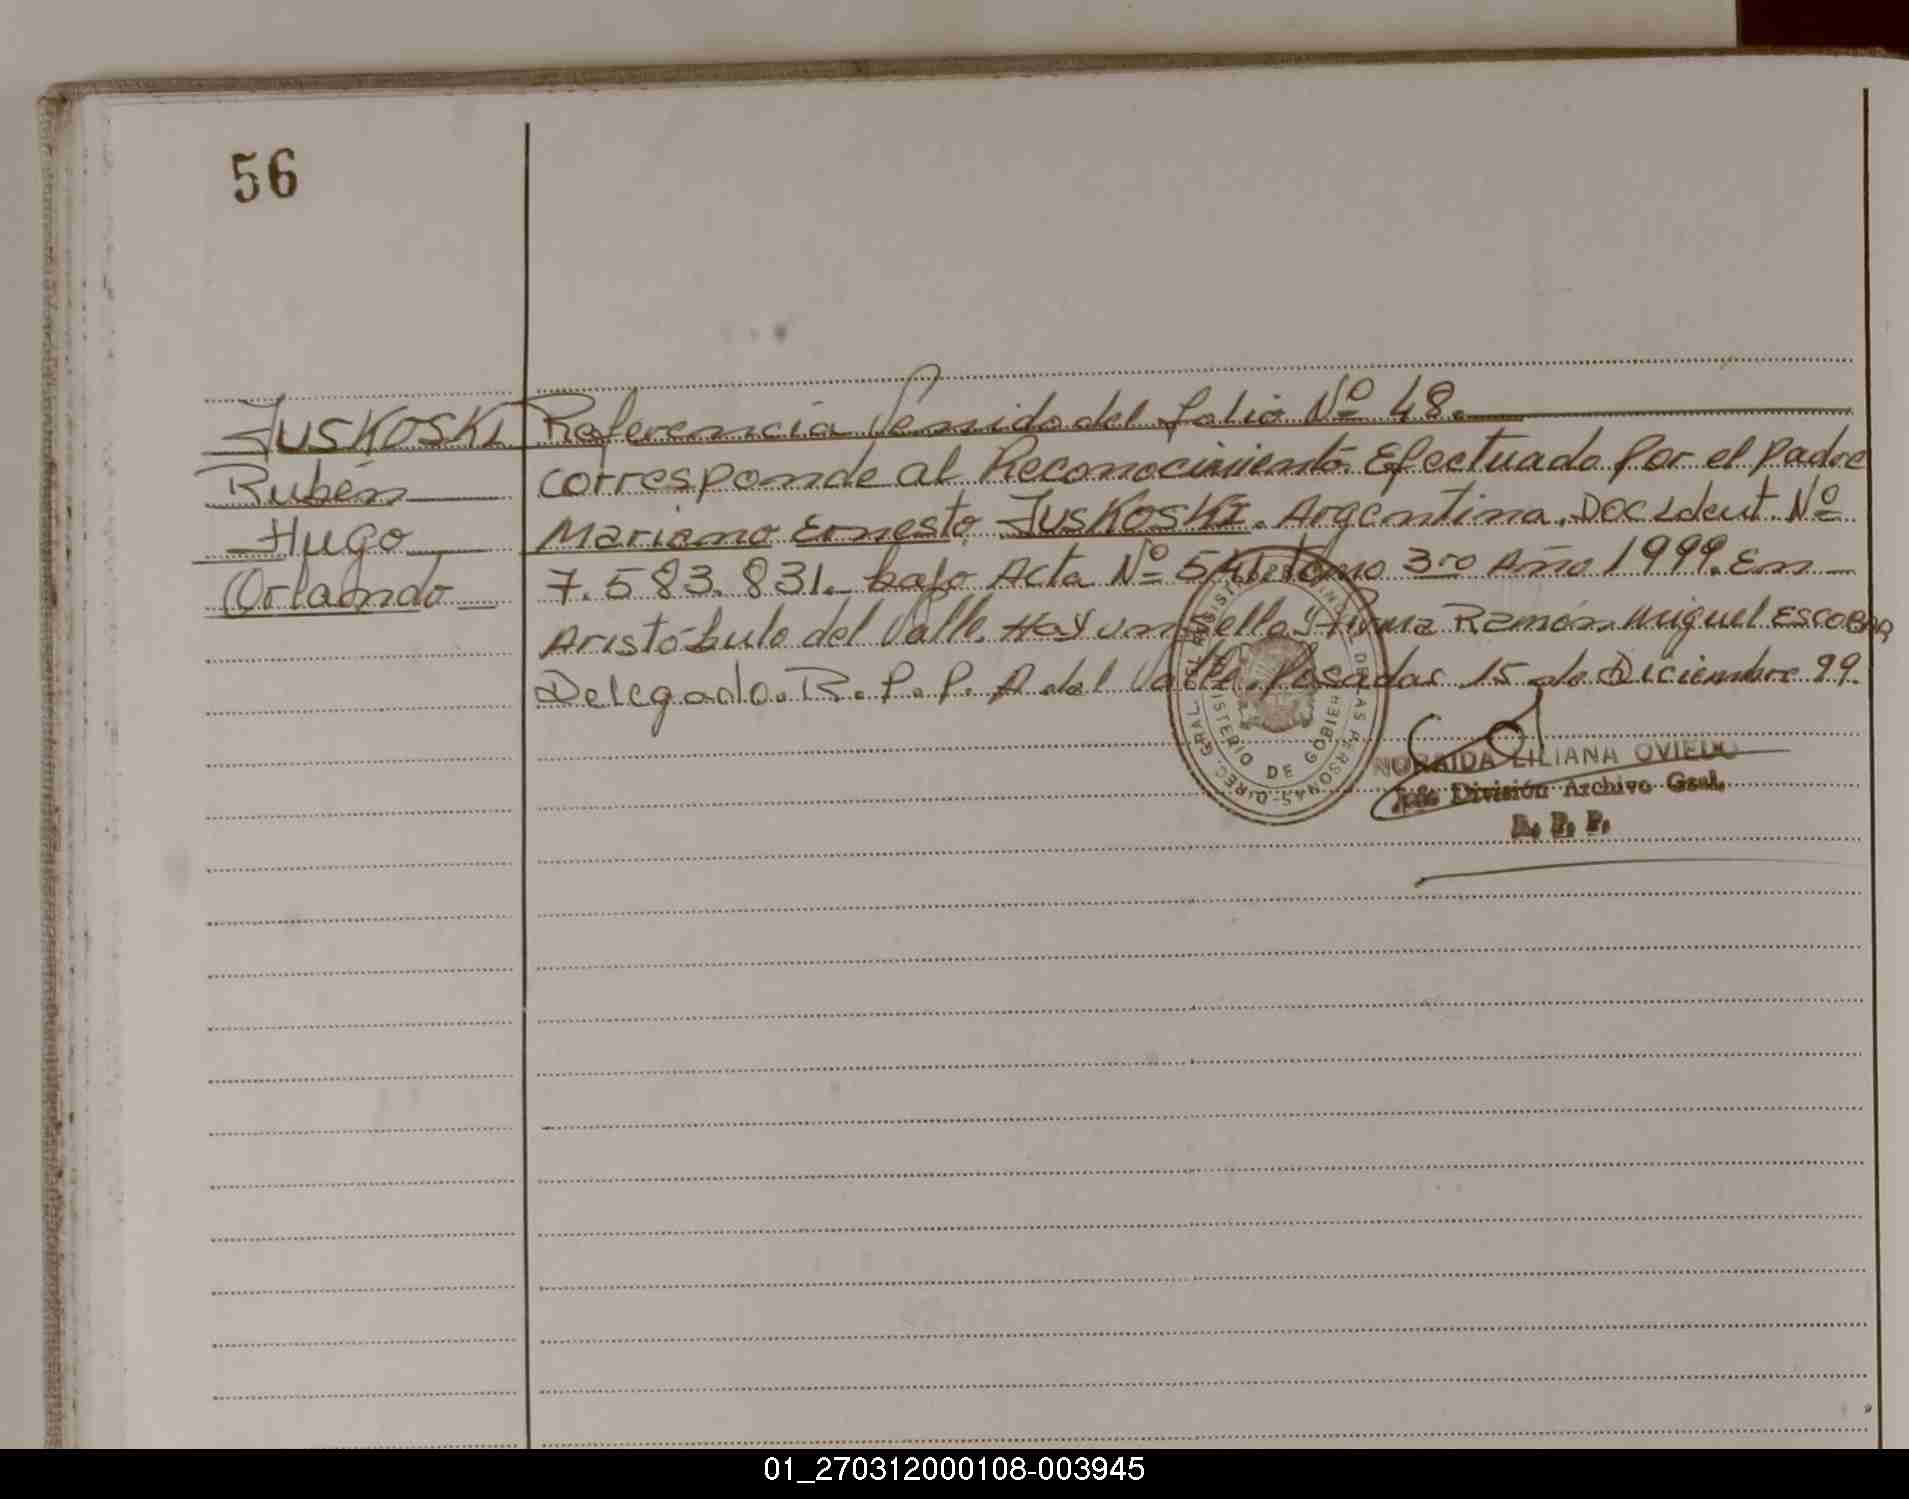 56
JUSKOSKI Referencia Venido del folio Nº 48.
Rubén corresponde al Reconocimiento Efectuado por el padre
Hugo Mariano Ernesto JUSKOSKI. Argentina. Doc Ident. Nº
Orlando 7.583.831. bajo Acta Nº tomo 3ro Año 1999. En
Aristóbulo del Valle. Hay un sello y firma Ramón Miguel ESCOBAR
Delegado. R. P. P. A del Valle. Posadas 15 de Diciembre 99.
MINISTERIO DE GOBIERNO
NORAIDA LILIANA OVIEDO
Jefe División Archivo Gral.
R. P. P.
01_270312000108-003945